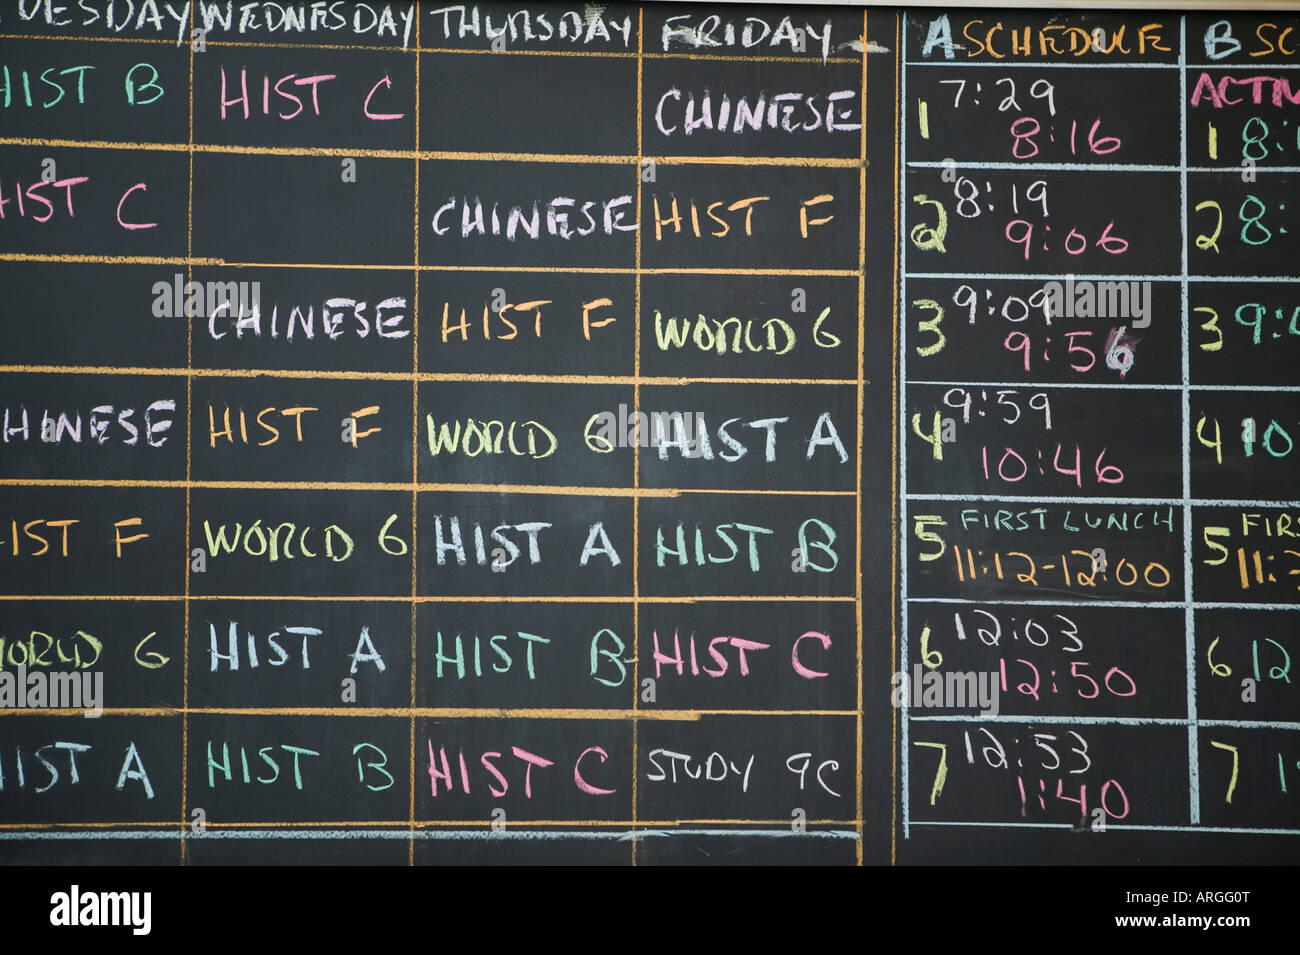 TUESDAY WEDNESDAY THURSDAY FRIDAY
HIST B HIST C CHINESE
HIST C CHINESE HIST F
CHINESE HIST F WORLD 6
CHINESE HIST F WORLD 6 HIST A
HIST F WORLD 6 HIST A HIST B
WORLD 6 HIST A HIST B HIST C
HIST A HIST B HIST C STUDY 9C
A SCHEDULE
1 7:29
8:16
2 8:19
9:06
3 9:09
9:56
4 9:59
10:46
5 FIRST LUNCH
11:12-12:00
6 12:03
12:50
7 12:53
1:40
B SC
ACTIV
1 8:1
2 8:
3 9:4
4 10
5 FIRS
11:3
6 12
7 1
alamy
Image ID: ARGG0T
www.alamy.com